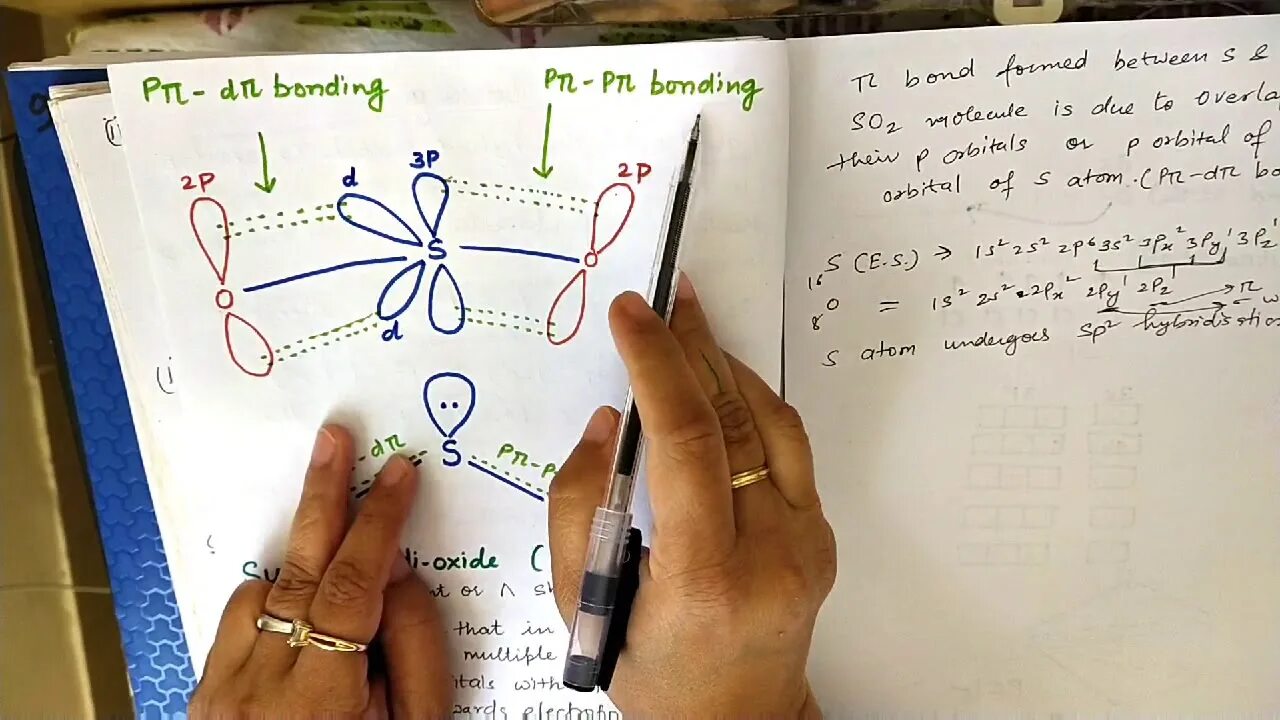 Pπ - dπ bonding
Pπ - Pπ bonding
2P
d
3P
2P
S
O
O
d
S
- dπ
Pπ - P
di-oxide (
that in
multiple
with
π bond formed between S &
SO2 molecule is due to overla
their p orbitals or p orbital of
orbital of S atom. (Pπ-dπ bo
16S (E.S.) → 1s² 2s² 2p⁶ 3s² 3Px² 3Py¹ 3Pz¹
8O = 1s² 2s² 2Px² 2Py¹ 2Pz
π
S atom undergoes Sp² hybridisation